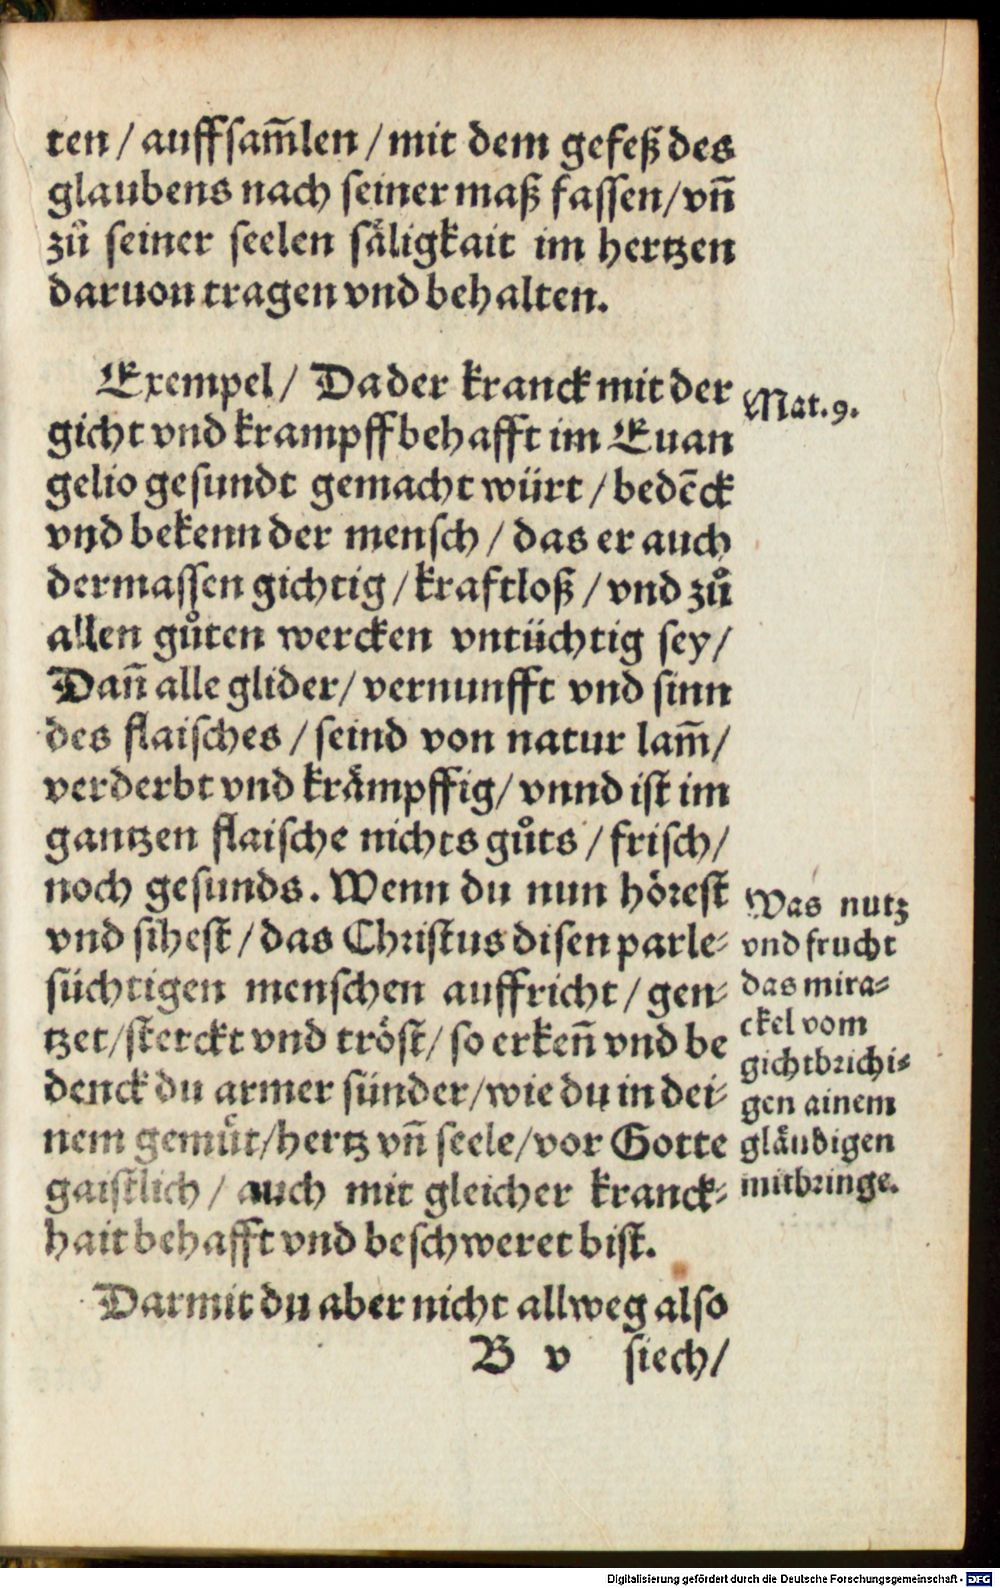 ten / auffsam̃len / mit dem gefeß des
glaubens nach seiner maß fassen / vñ
zů seiner seelen sáligkait im hertzen
daruon tragen vnd behalten.
Exempel / Da der kranck mit der
Mat. 9.
gicht vnd krampff behafft im Euan
gelio gesundt gemacht würt / bedẽck
vnd bekenn der mensch / das er auch
dermassen gichtig / kraftloß / vnd zů
allen gůten wercken vntüchtig sey /
Dañ alle glider / vernunfft vnd sinn
des flaisches / seind von natur lam̃ /
verderbt vnd krämpffig / vnnd ist im
gantzen flaische nichts gůts / frisch /
noch gesunds. Wenn du nun hörest
vnd sihest / das Christus disen parle-
süchtigen menschen auffricht / gen-
tzet / sterckt vnd tröst / so erkeñ vnd be
denck du armer sünder / wie du in dei-
nem gemüt / hertz vñ seele / vor Gotte
gaistlich / auch mit gleicher kranck-
hait behafft vnd beschweret bist.
Was nutz
vnd frucht
das mira-
ckel vom
gichtbrichi-
gen ainem
gläudigen
mitbringe.
Darmit du aber nicht allweg also
B v siech /
Digitalisierung gefördert durch die Deutsche Forschungsgemeinschaft - DFG